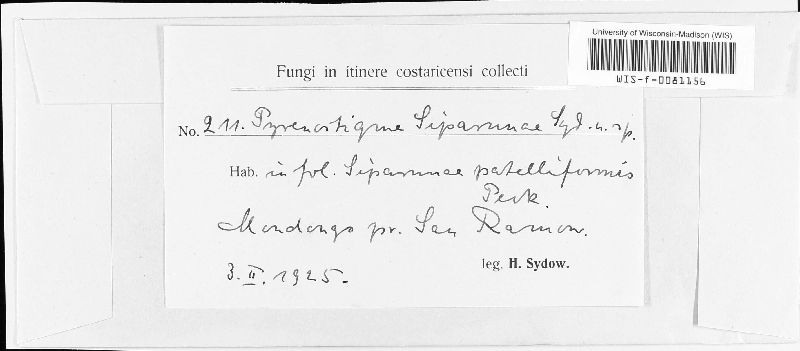 University of Wisconsin-Madison (WIS)
WIS-f-0081156
Fungi in itinere costaricensi collecti
No. 211. Pyrenostigme Siparunae Syd. n. sp.
Hab. in fol. Siparunae patelliformis
Perk.
Mondongo pr. San Ramon.
3. II. 1925.
leg. H. Sydow.